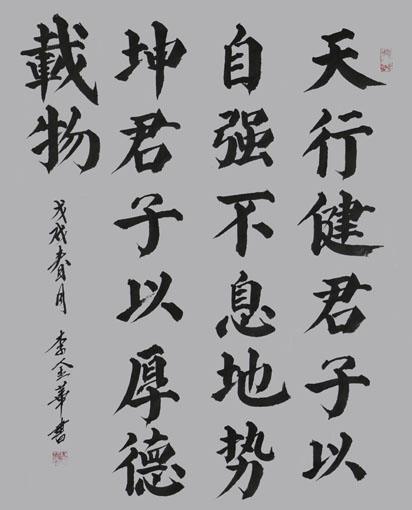 天行健君子以
自强不息地势
坤君子以厚德
載物
戊戌春月
李金華書